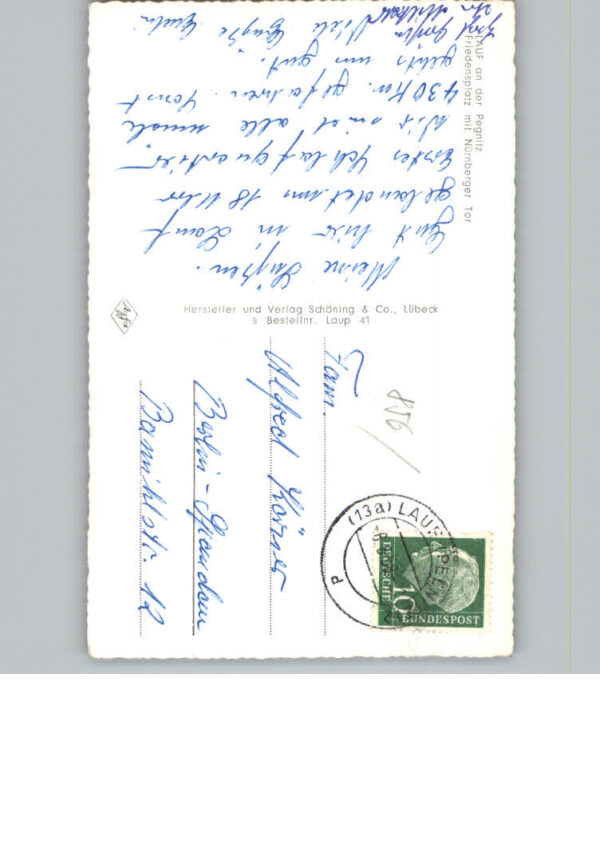 LAUF an der Pegnitz
Friedensplatz mit Nürnberger Tor
Meine Süßen.
Gut hier in Lauf
gelandet um 18 Uhr
Erstes Schlafquartier
Wir sind alle
430 Km. gefahren. Sonst
geht's uns gut.
Viele Grüße
Hersteller und Verlag Schöning & Co., Lübeck
s Bestellnr. Laup 41
Agfa
Fam.
Alfred Körner
Berlin-Spandau
Barnihlstr. 12
856
(13a) LAUF (PEGN
DEUTSCHE
BUNDESPOST
10